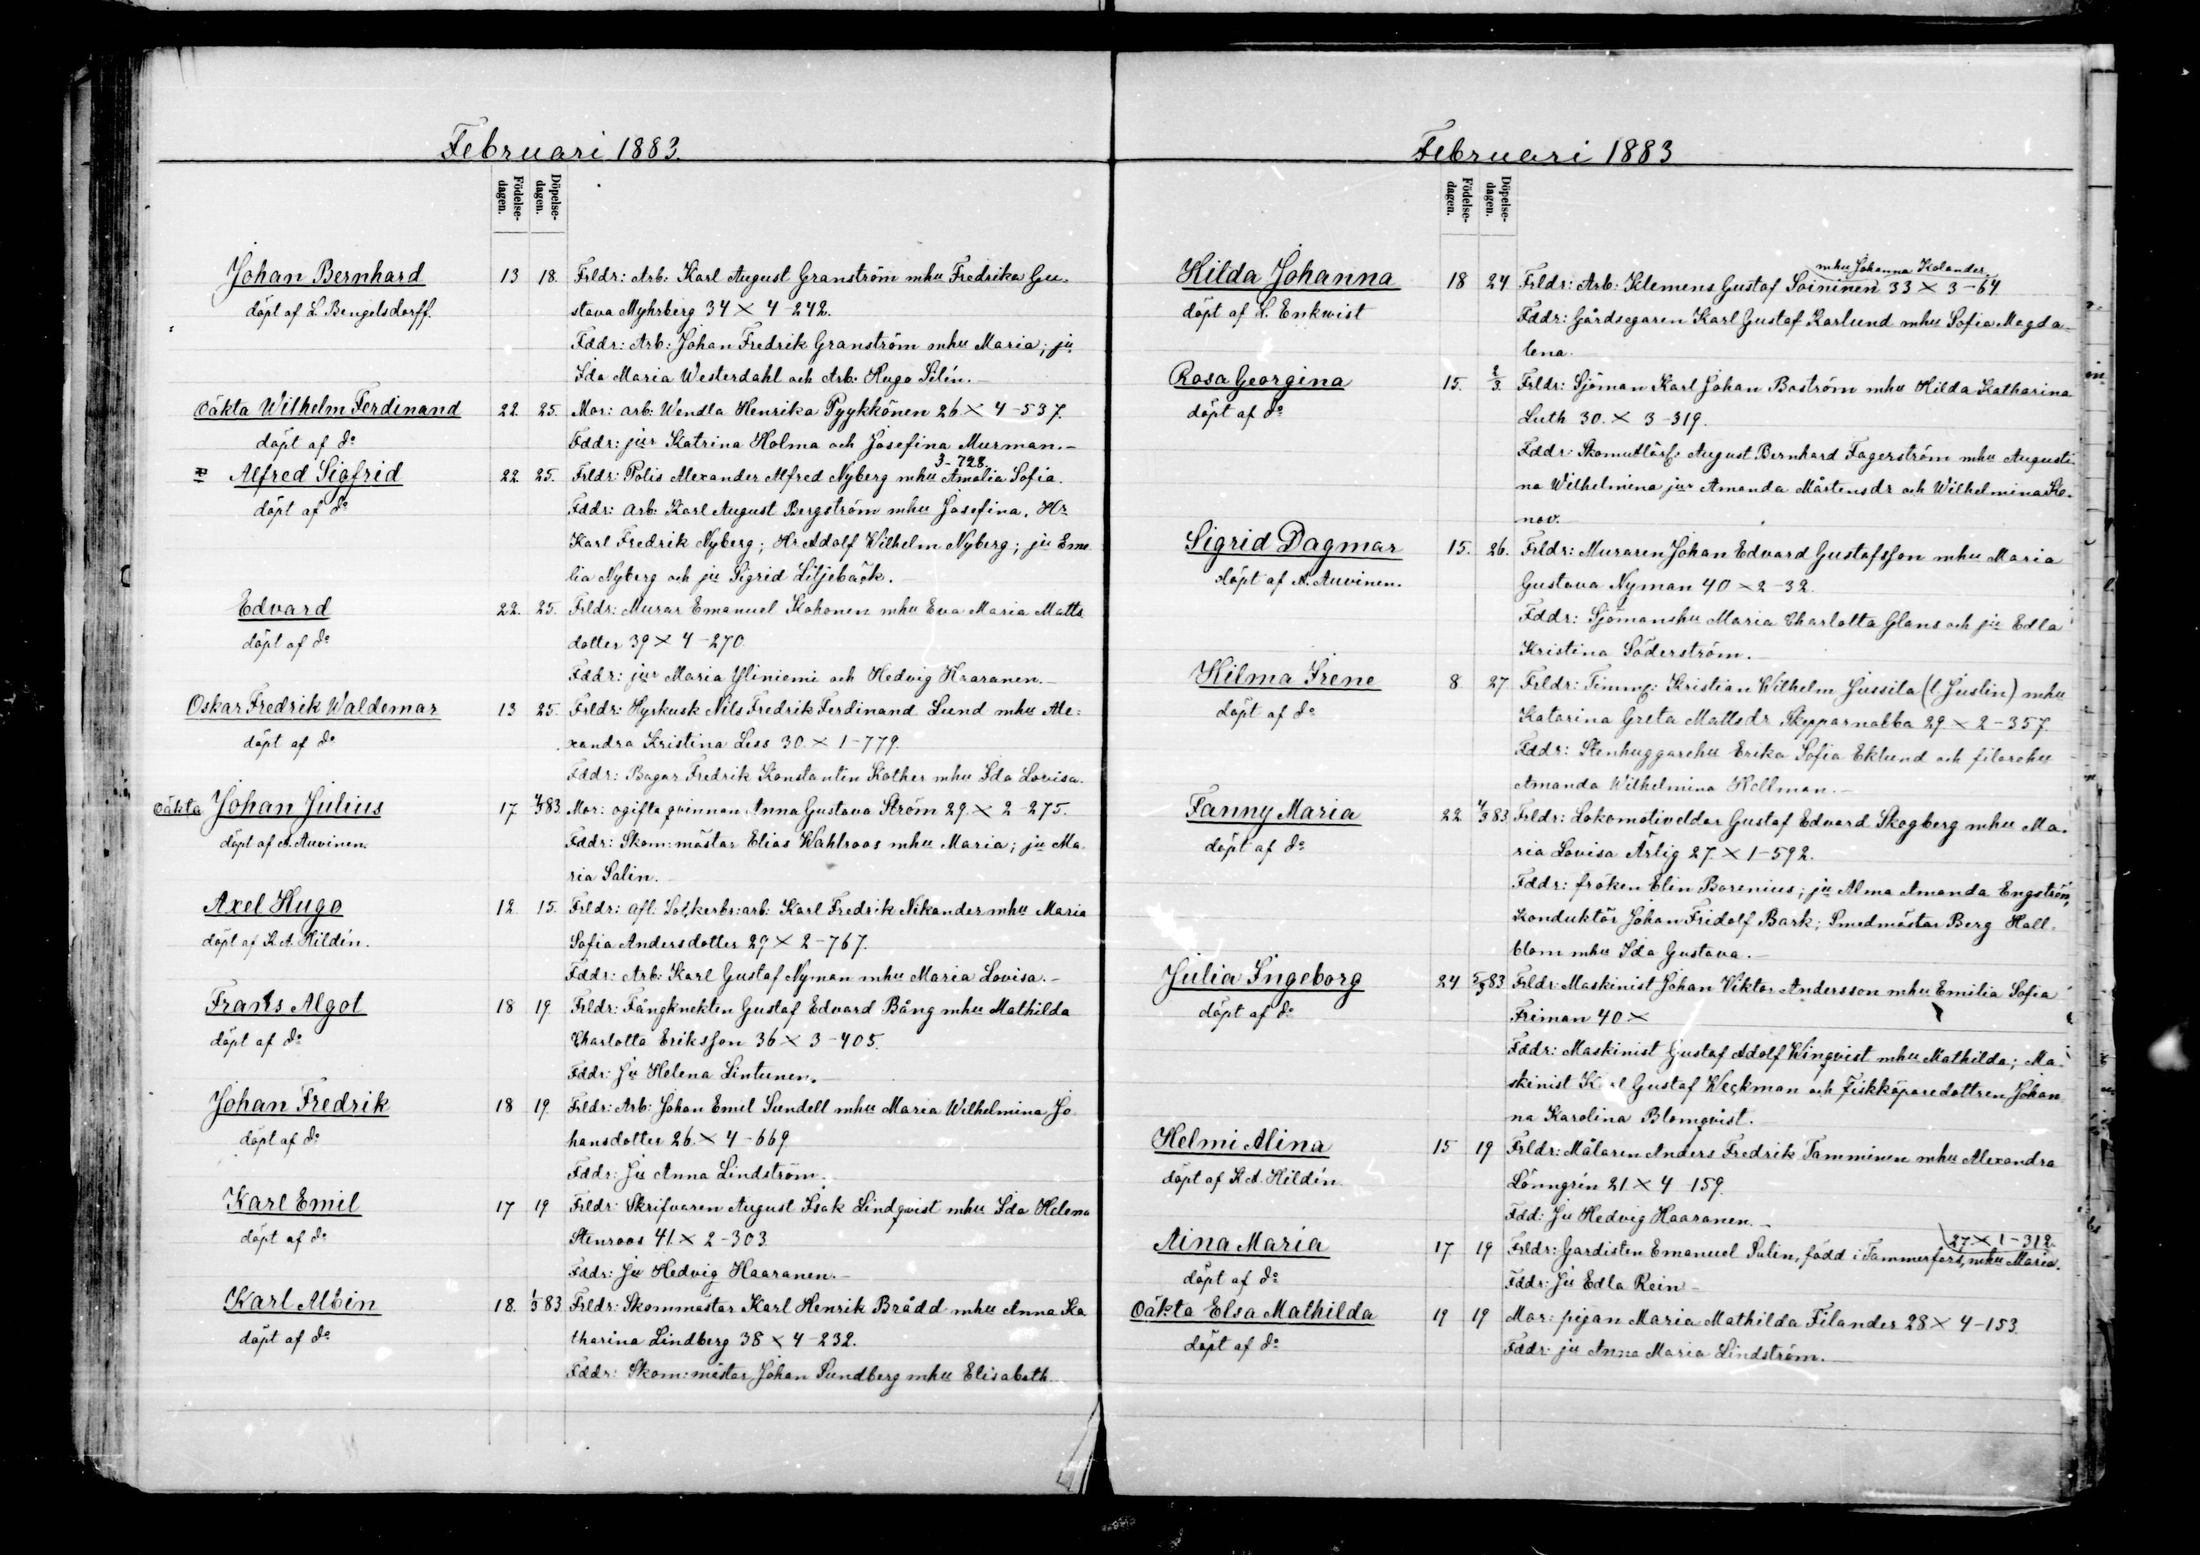 Februari 1883.
Födelse-dagen. Döpelse-dagen.
Johan Bernhard 13 18. Frldr: Arb: Karl August Granström mhu Fredrika Gu-
döpt af L. Bengelsdorff. stava Myhrberg 34 × 4-242.
Fddr: Arb: Johan Fredrik Granström mhu Maria; ju
Ida Maria Westerdahl och Arb: Hugo Silén.-
Oäkta Wilhelm Ferdinand 22. 25. Mor: arb: Wendla Henrika Pyykkönen 26 × 4-537.
döpt af do Fddr: jur Katrina Holma och Josefina Murman.-
3-728
Alfred Sigfrid 22. 25. Frldr: Polis Alexander Alfred Nyberg mhu Amalia Sofia.
döpt af do Fddr: Arb: Karl August Bergström mhu Josefina, Hr
Karl Fredrik Nyberg; Hr Adolf Wilhelm Nyberg; ju Eme-
lia Nyberg och ju Sigrid Liljebäck.-
Edvard 22. 25. Frldr: Murar Emanuel Kohonen mhu Eva Maria Matts
döpt af do dotter 39 × 4-270.
Fddr: jur Maria Yliniemi och Hedvig Haaranen.-
Oskar Fredrik Waldemar 13 25. Frldr: Hyrkusk Nils Fredrik Ferdinand Lund mhu Ale-
döpt af do xandra Kristina Less 30 × 1-779.
Fddr: Bagar Fredrik Konstantin Kother mhu Ida Lovisa.
Oäkta Johan Julius 17 4/3 83. Mor: ogifta qvinnan Anna Gustava Ström 29. × 2-275.
döpt af A. Auvinen. Fddr: Skom:mästar Elias Wahlroos mhu Maria; ju Ma-
ria Salin.
Axel Hugo 12. 15. Frldr: afl. Sockerbr:arb: Karl Fredrik Nikander mhu Maria
döpt af K. A. Hildén. Sofia Andersdotter 29 × 2-767.
Fddr: Arb: Karl Gustaf Nyman mhu Maria Lovisa.-
Frans Algot 18 19 Frldr: Fångknekten Gustaf Edvard Bång mhu Mathilda
döpt af do Charlotta Eriksson 36 × 3-405.
Fddr: Ju Helena Lintunen.
Johan Fredrik 18 19. Frldr: Arb: Johan Emil Sundell mhu Maria Wilhelmina Jo-
döpt af do hansdotter 26. × 4-669
Fddr: Ju Anna Lindström.
Karl Emil 17 19 Frldr: Skrifvaren August Isak Lindqvist mhu Ida Helena
döpt af do Stenroos 41. × 2-303
Fddr: Ju Hedvig Haaranen.-
Karl Albin 18. 1/3 83 Frldr: Skommästar Karl Henrik Brådd mhu Anna Ka
döpt af do tharina Lindberg 38 × 4-232.
Fddr: Skom:mästar Johan Sundberg mhu Elisabeth
Februari 1883
Födelse-dagen. Döpelse-dagen.
mhu Johanna Kolander
Hilda Johanna 18 24 Frldr: Arb: Klemens Gustaf Soininen 33 × 3-64
döpt af H. Enkwist Fddr: Gårdsegaren Karl Gustaf Karlund mhu Sofia Magda-
lena.
Rosa Georgina 15. 2/3. Frldr: Sjöman Karl Johan Boström mhu Hilda Katharina
döpt af do Luth 30. × 3-319.
Fddr: August Bernhard Fagerström mhu Augusti-
na Wilhelmina jur Amanda Mårtensdr och Wilhelmina
nov.
Sigrid Dagmar 15. 26. Frldr: Muraren Johan Edvard Gustafsson mhu Maria
döpt af A. Auvinen. Gustava Nyman 40 × 2-32.
Fddr: Sjömanshu Maria Charlotta Glans och ju Edla
Kristina Söderström.-
Hilma Irene 8 27 Frldr: Timmrm: Kristian Wilhelm Jussila (l. Juslin) mhu
döpt af do Katarina Greta Mattsdr Skepparnabba 29. × 2-357.
Fddr: Stenhuggarehu Erika Sofia Eklund och filarehu
Amanda Wilhelmina Hellman.-
Fanny Maria 22 4/3 83 Frldr: Lokomotiveldar Gustaf Edvard Skogberg mhu Ma-
döpt af do ria Lovisa Ärlig 27. × 1-592.
Fddr: fröken Elin Borenius; ju Alma Amanda Engström,
Konduktör Johan Fridolf Bark; Smedmästar Berg Hall-
blom mhu Ida Gustava.-
Julia Ingeborg 24 5/3 83 Frldr: Maskinist Johan Viktor Andersson mhu Emilia Sofia
döpt af do Friman 40 ×
Fddr: Maskinist Gustaf Adolf Winqvist mhu Mathilda; Ma-
skinist Karl Gustaf Weckman och Fiskköparedottren Johan
na Karolina Blomqvist.-
Helmi Alina 15 19 Frldr: Målaren Anders Fredrik Tamminen mhu Alexandra
döpt af K. A. Hildén Lönngrén 21 × 4-159.
Fdd: Ju Hedvig Haaranen.-
27 × 1-312.
Aina Maria 17 19 Frldr: Gardisten Emanuel Sulin, född i Tammerfors, mhu Maria.
döpt af do Fddr: Ju Edla Rein-
Oäkta Elsa Mathilda 19 19 Mor: pigan Maria Mathilda Filander 28 × 4-153.
döpt af do Fddr: ju Anna Maria Lindström.-